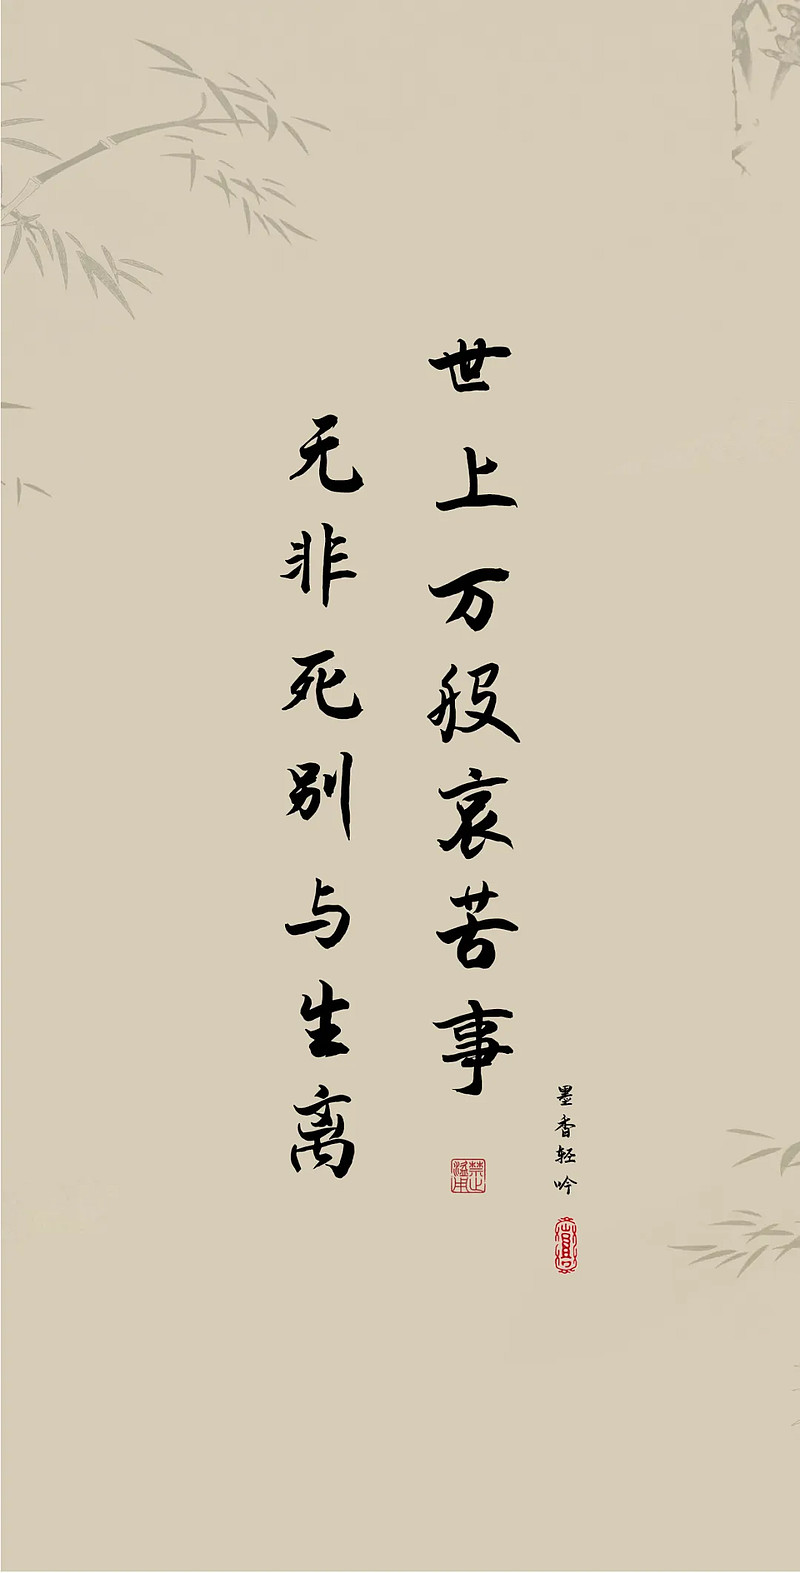 世上万般哀苦事
无非死别与生离
墨香轻吟
禁止
滥用